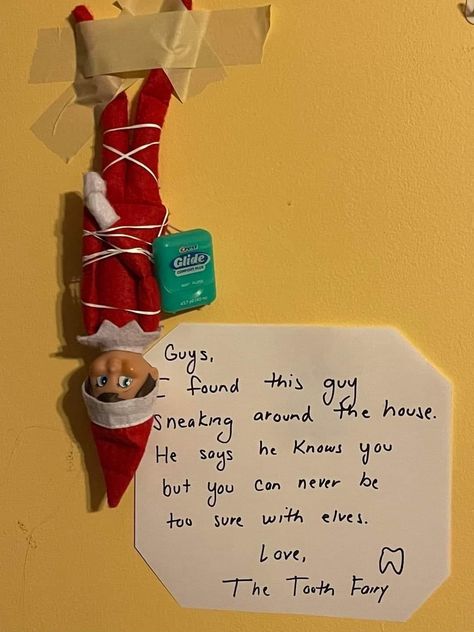 Crest
Glide
COMFORT PLUS
Guys,
I found this guy
sneaking around the house.
He says he knows you
but you can never be
too sure with elves.
Love,
The Tooth Fairy